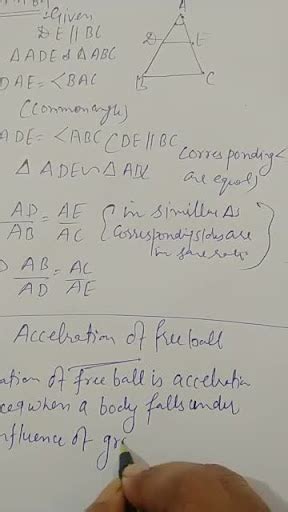 :Given
DE || BC
A
D E
B C
△ ADE & △ABC
DAE = <BAC
(common angle)
ADE = <ABC (DE || BC
corresponding <
are equal)
△ ADE ~ △ ABC
AD/AB = AE/AC { in similler △s
corresponding sides are
in same ratio }
AB/AD = AC/AE
Accelration of free ball
ation of free ball is accelration
when a body falls under
nfluence of gr